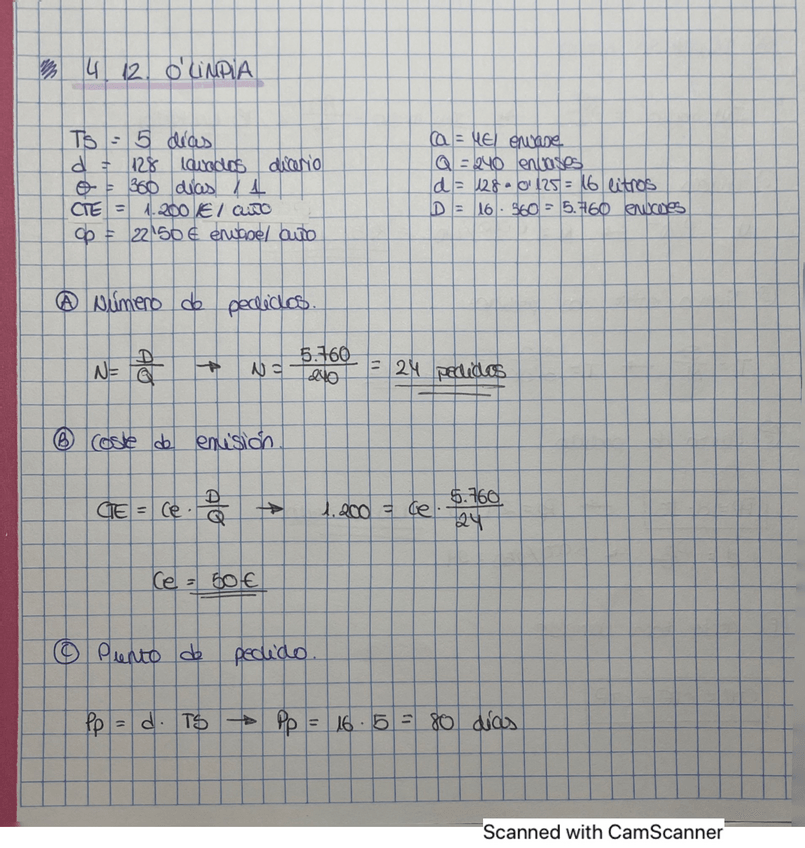 4.12. O'LIMPIA
TS = 5 días
d = 128 lavados diario
θ = 360 días / 1
CTE = 1.200 €/ año
Cp = 22'50 € envase/ año
Ca = 4€/ envase
Q = 240 envases
d = 128 · 0'125 = 16 litros
D = 16 · 360 = 5.760 envases
Ⓐ Número de pedidos.
N = D/Q → N = 5.760/240 = 24 pedidos
Ⓑ Coste de emisión.
CTE = Ce · D/Q → 1.200 = Ce · 5.760/24
Ce = 50 €
Ⓒ Punto de pedido.
Pp = d · TS → Pp = 16 · 5 = 80 días
Scanned with CamScanner